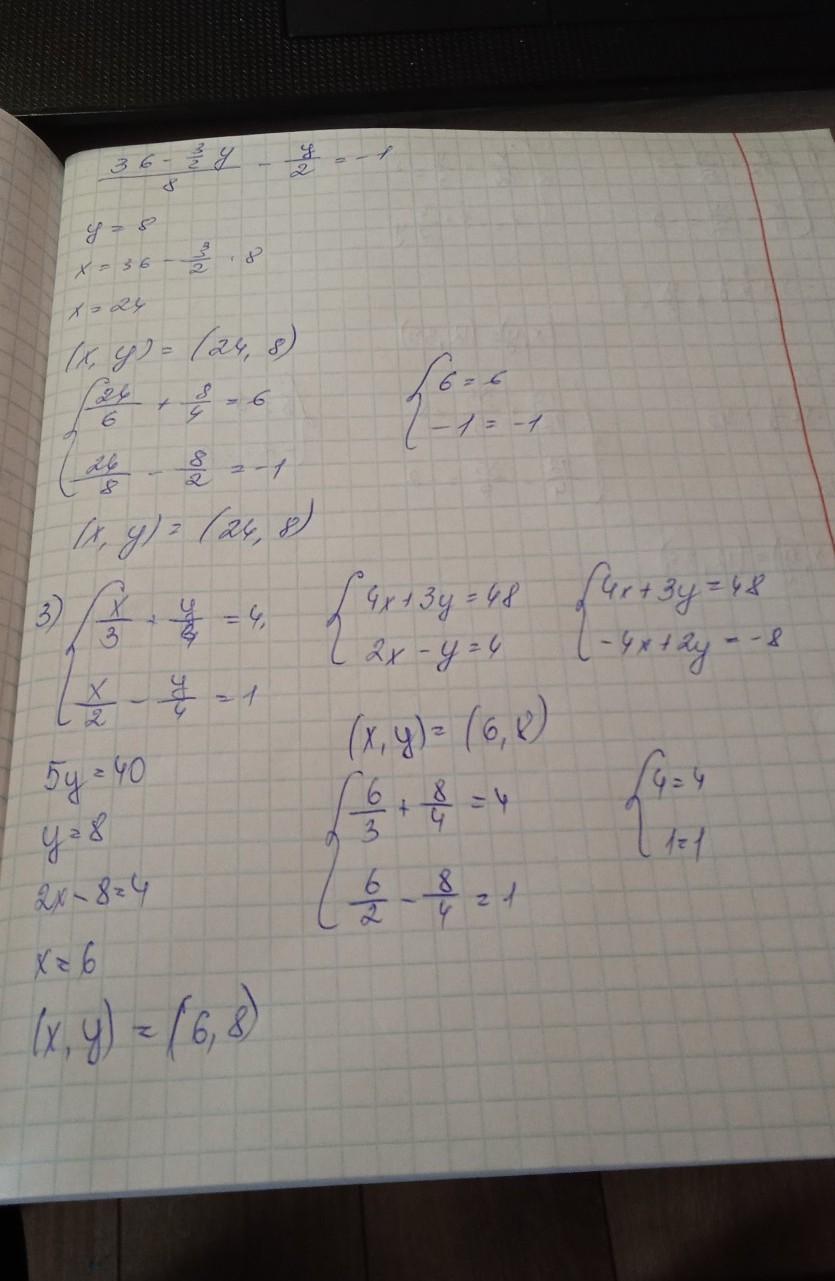 (36 - 3/2 y)/8 - y/2 = -1
y = 8
x = 36 - 3/2 · 8
x = 24
(x, y) = (24, 8)
{ 24/6 + 8/4 = 6
24/8 - 8/2 = -1
{ 6 = 6
-1 = -1
(x, y) = (24, 8)
3) { x/3 + y/4 = 4,
x/2 - y/4 = 1
{ 4x + 3y = 48
2x - y = 4
{ 4x + 3y = 48
-4x + 2y = -8
5y = 40
y = 8
2x - 8 = 4
x = 6
(x, y) = (6, 8)
(x, y) = (6, 8)
{ 6/3 + 8/4 = 4
6/2 - 8/4 = 1
{ 4 = 4
1 = 1